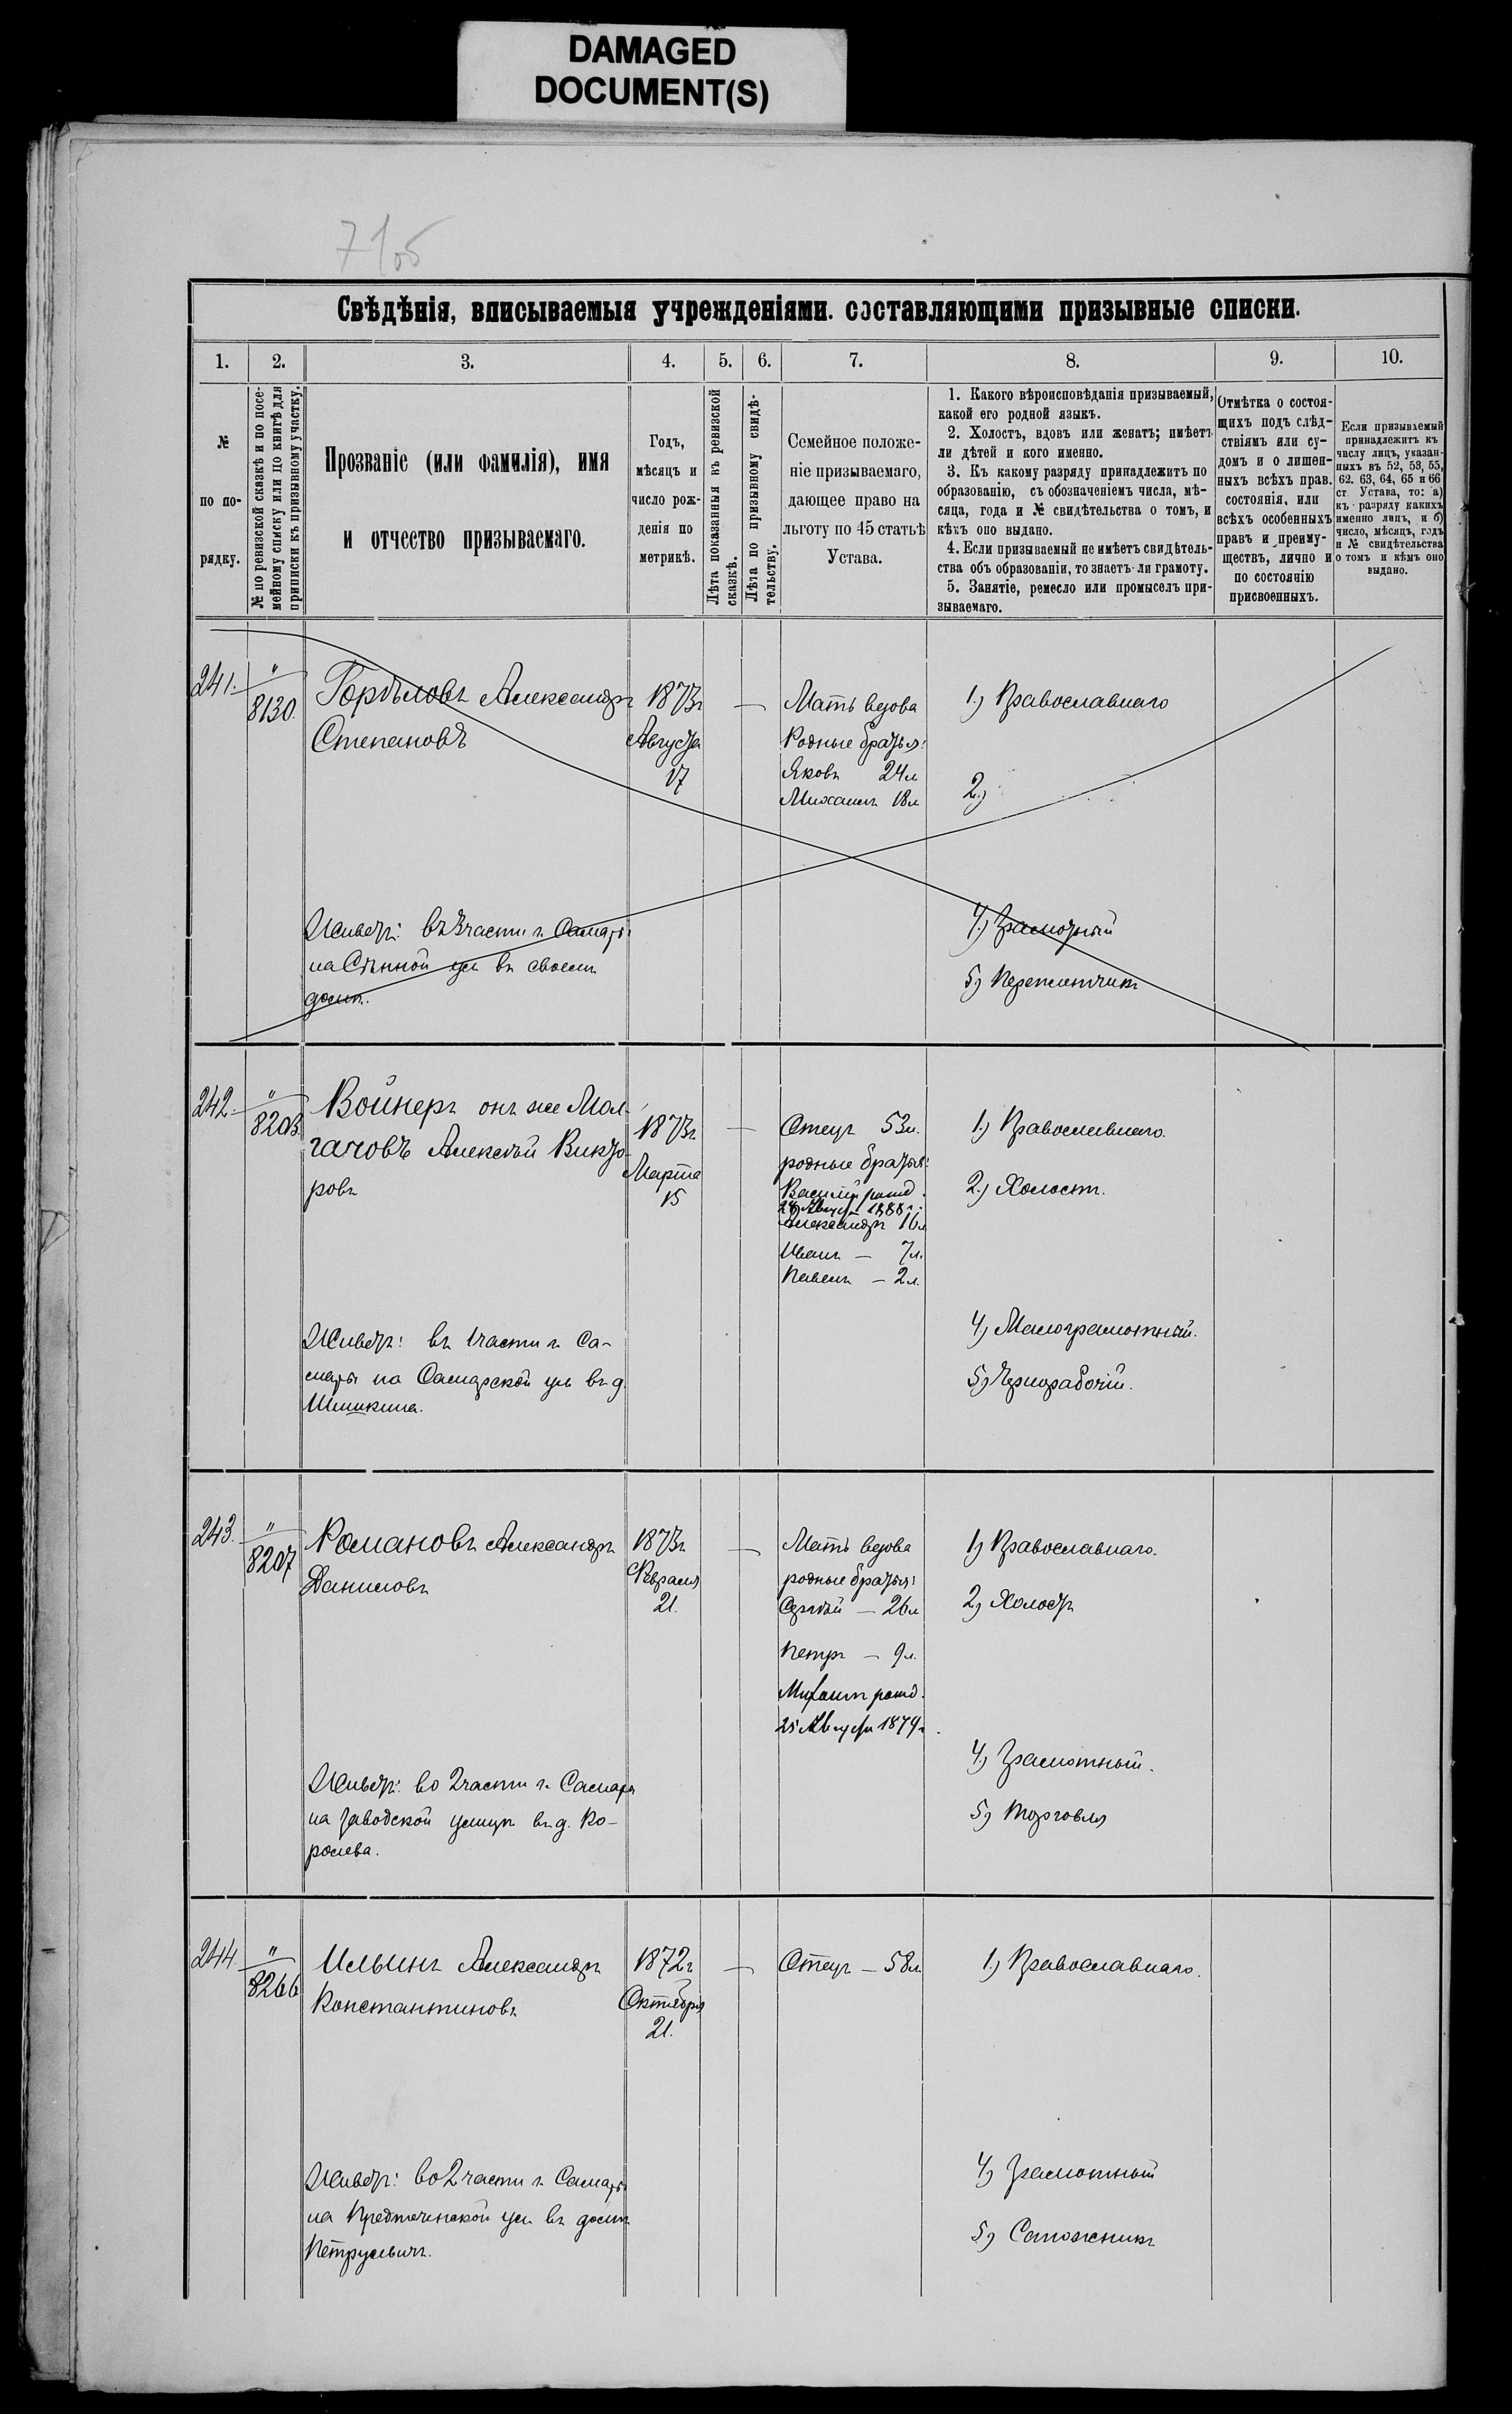 DAMAGED
DOCUMENT(S)
7105
Свѣдѣнія, вписываемыя учрежденіями. составляющими призывные списки.
1.
2.
3.
4.
5.
6.
7.
8.
9.
10.
№
по по-
рядку.
№ по ревизской сказкѣ и по посе-
мейному списку или по книгѣ для
приписки къ призывному участку.
Прозваніе (или фамилія), имя
и отчество призываемаго.
Годъ,
мѣсяцъ и
число рож-
денія по
метрикѣ.
Лѣта показанныя въ ревизской
сказкѣ.
Лѣта по призывному свидѣ-
тельству.
Семейное положе-
ніе призываемаго,
дающее право на
льготу по 45 статьѣ
Устава.
1. Какого вѣроисповѣданія призываемый,
какой его родной языкъ.
2. Холостъ, вдовъ или женатъ; имѣетъ
ли дѣтей и кого именно.
3. Къ какому разряду принадлежитъ по
образованію, съ обозначеніемъ числа, мѣ-
сяца, года и № свидѣтельства о томъ, и
кѣмъ оно выдано.
4. Если призываемый не имѣетъ свидѣтель-
ства объ образованіи, то знаетъ ли грамоту.
5. Занятіе, ремесло или промыселъ при-
зываемаго.
Отмѣтка о состоя-
щихъ подъ слѣд-
ствіямъ или су-
домъ и о лишен-
ныхъ всѣхъ прав.
состоянія, или
всѣхъ особенныхъ
правъ и преиму-
ществъ, лично и
по состоянію
присвоенныхъ.
Если призываемый
принадлежитъ къ
числу лицъ, указан-
ныхъ въ 52, 53, 55,
62. 63, 64, 65 и 66
ст Устава, то: а)
къ разряду какихъ
именно лицъ, и б)
число, мѣсяцъ, годъ
и № свидѣтельства
о томъ и кѣмъ оно
выдано.
241.
"
8130.
Горѣловъ Александръ
Степановъ
1873г
Августа
17
—
Мать вдова
Родные братья:
Яковъ 24л
Михаилъ 18л
1.) Православнаго
2.)
4.) Грамотный
5) Переплетчикъ
Живетъ: въ 3 части г. Самары
на Сѣнной ул въ своемъ
домѣ.
242.
"
8203.
Войнеръ онъ же Мол-
гачовъ Алексѣй Викто-
ровъ
1873г
Марта
15
—
Отецъ 53л.
родные братья:
Василій ражд.
28 Август 1888 г.
Александръ 16л
Иванъ — 7л.
Павелъ — 2л.
1.) Православнаго.
2.) Холостъ.
4.) Малограмотный.
5) Чернорабочій.
Живетъ: въ 1 части г. Са-
мары на Самарской ул въ д.
Шишкина.
243.
"
8207
Романовъ Александръ
Даниловъ
1873г
Февраля
21.
—
Мать вдова
родные братья:
Сергѣй — 26л
Петръ — 9л.
Михаилъ ражд.
25 Августа 1874г.
1) Православнаго.
2) Холостъ
4.) Грамотный.
5) Торговля
Живетъ: во 2 части г. Самары
на Заводской улицѣ въ д. Ко-
ролева.
244.
"
8266
Ильинъ Александръ
Константиновъ
1872г
Октября
21.
—
Отецъ — 58л
1.) Православнаго.
4) Грамотный
5) Сапожникъ
Живетъ: во 2 части г. Самары
на Предтеченской ул въ домѣ
Петрулевичъ.